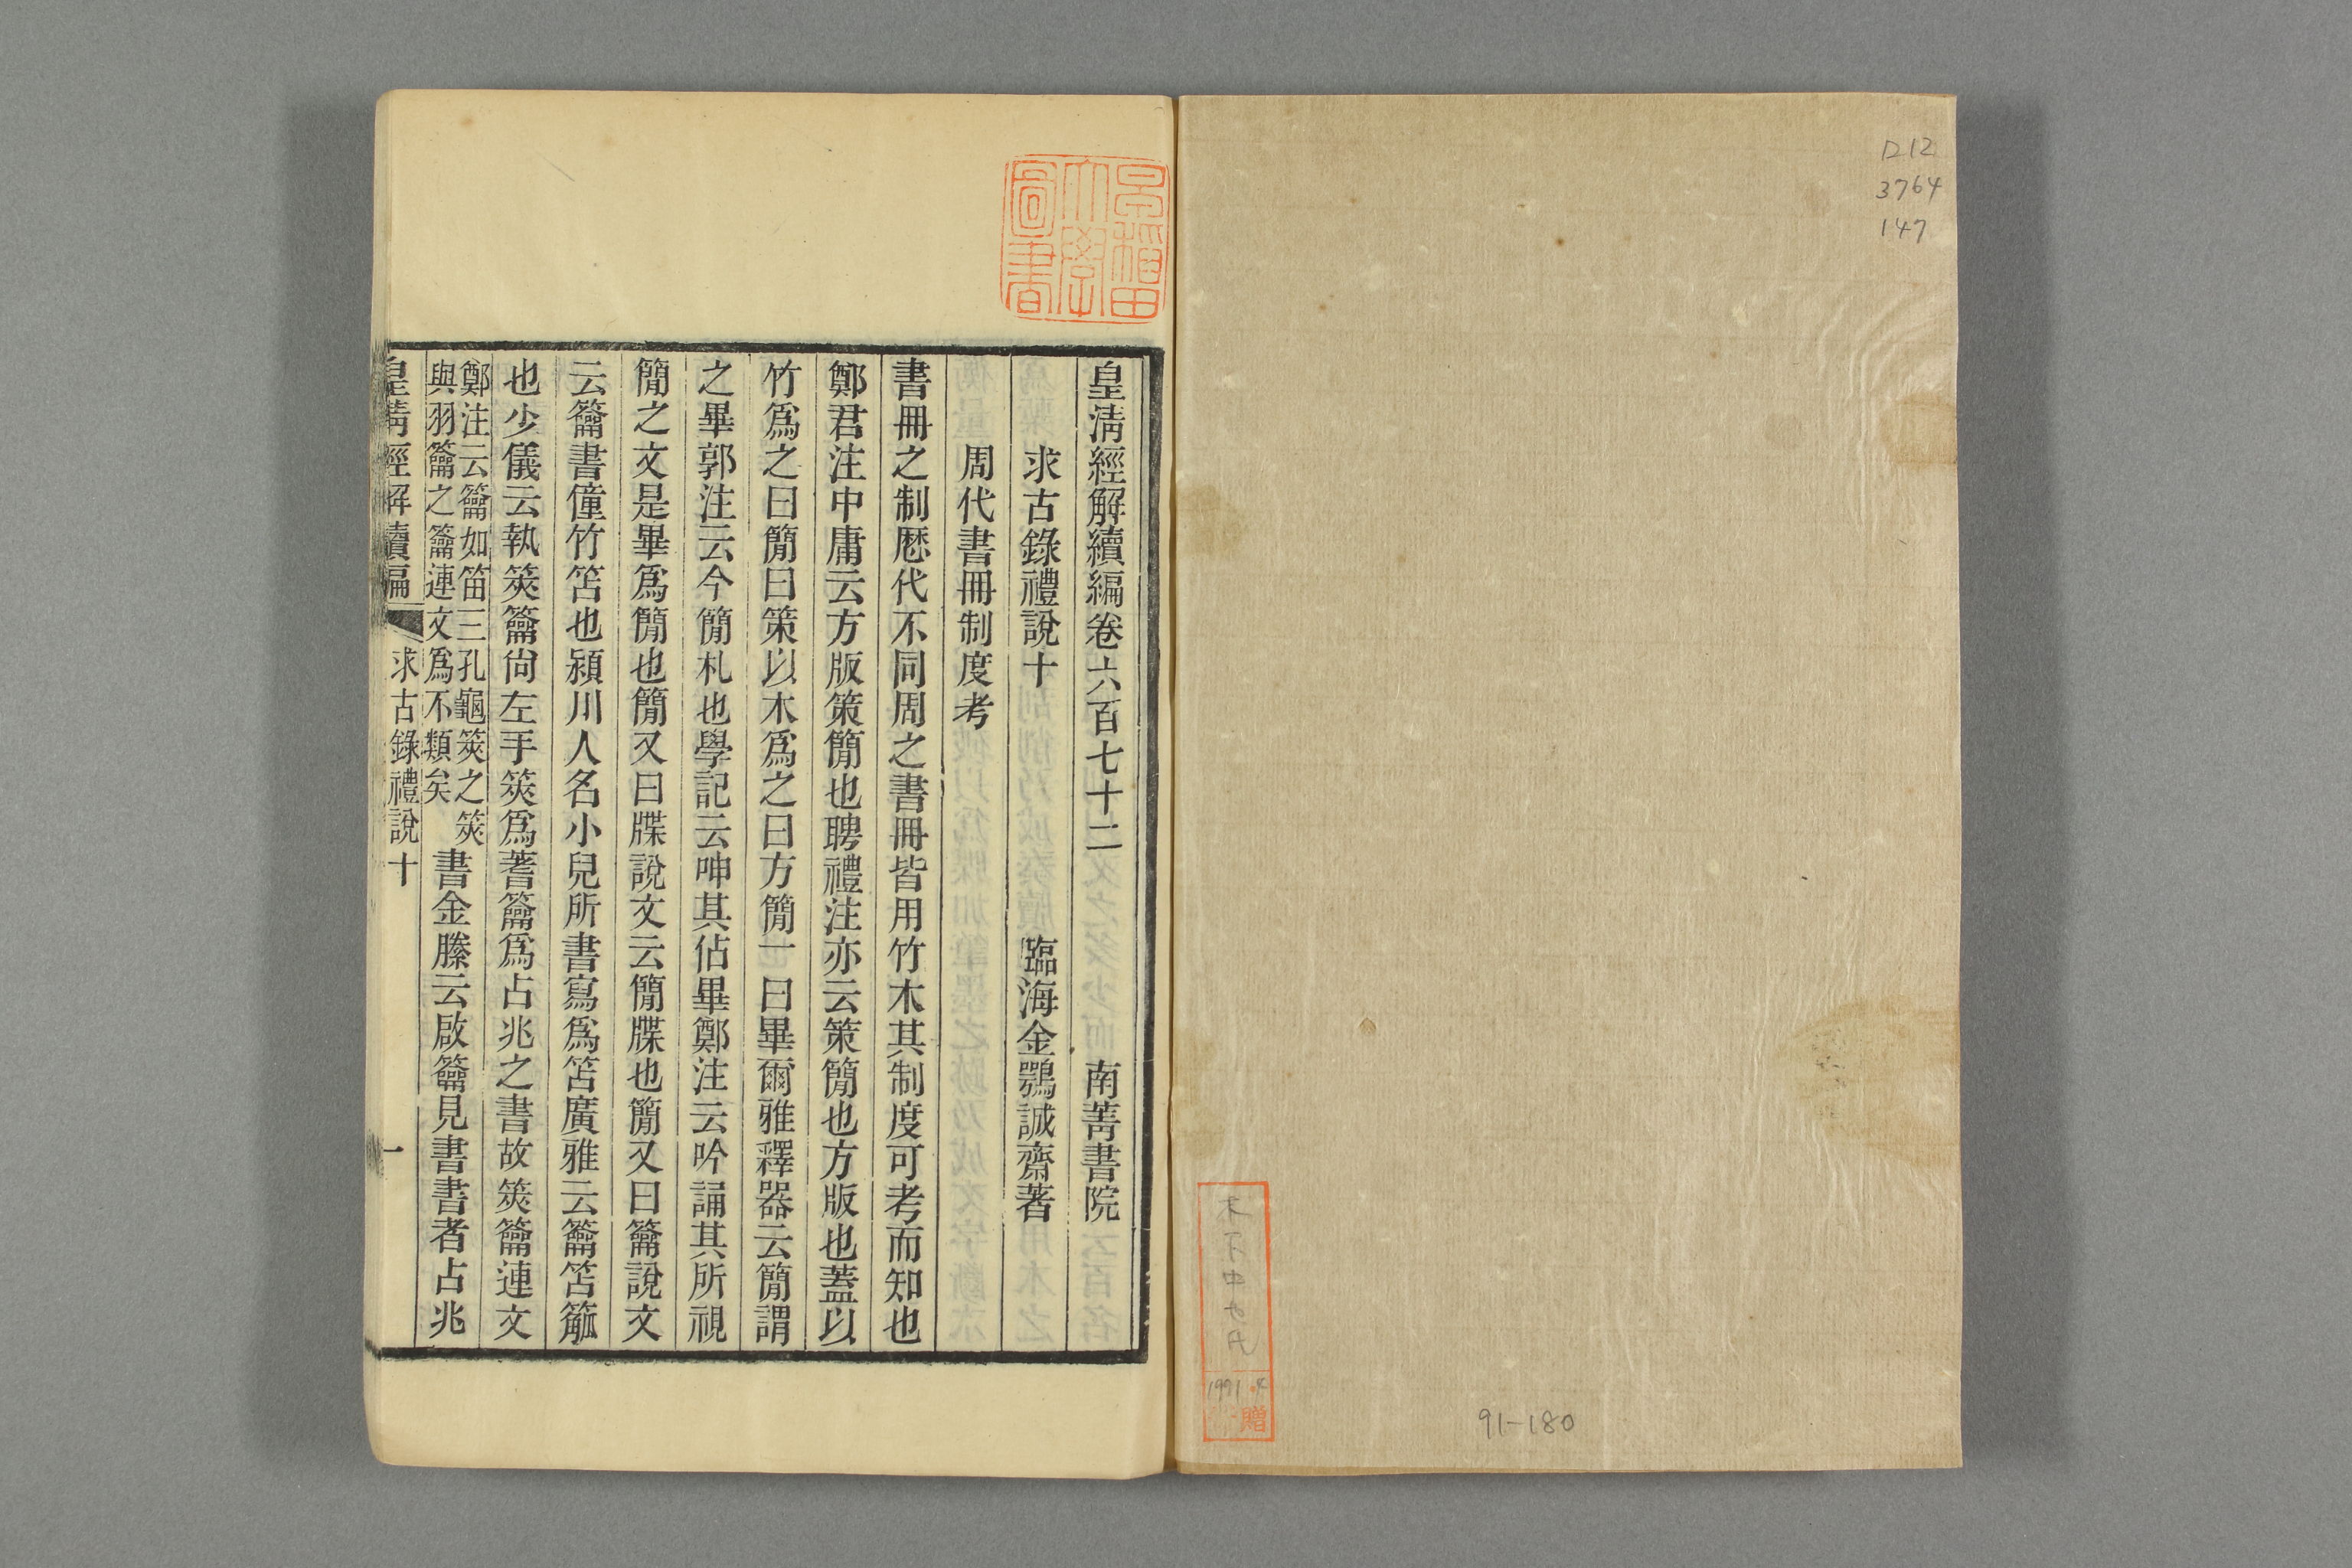 D212
3764
147
91-180
1991.4
贈
早稲田大學圖書
皇清經解續編卷六百七十二 南菁書院
求古錄禮說十 臨海金鶚誠齋著
周代書冊制度考
書冊之制厯代不同周之書冊皆用竹木其制度可考而知也
鄭君注中庸云方版策簡也聘禮注亦云策簡也方版也蓋以
竹爲之曰簡曰策以木爲之曰方簡一曰畢爾雅釋器云簡謂
之畢郭注云今簡札也學記云呻其佔畢鄭注云吟誦其所視
簡之文是畢爲簡也簡又曰牒說文云簡牒也簡又曰籥說文
云籥書僮竹笘也潁川人名小兒所書寫爲笘廣雅云籥笘觚
也少儀云執筴籥尙左手筴爲蓍籥爲占兆之書故筴籥連文
鄭注云籥如笛三孔龜筴之筴
與羽籥之籥連文爲不類矣
書金縢云啟籥見書書者占兆
皇清經解續編 求古錄禮說十 一